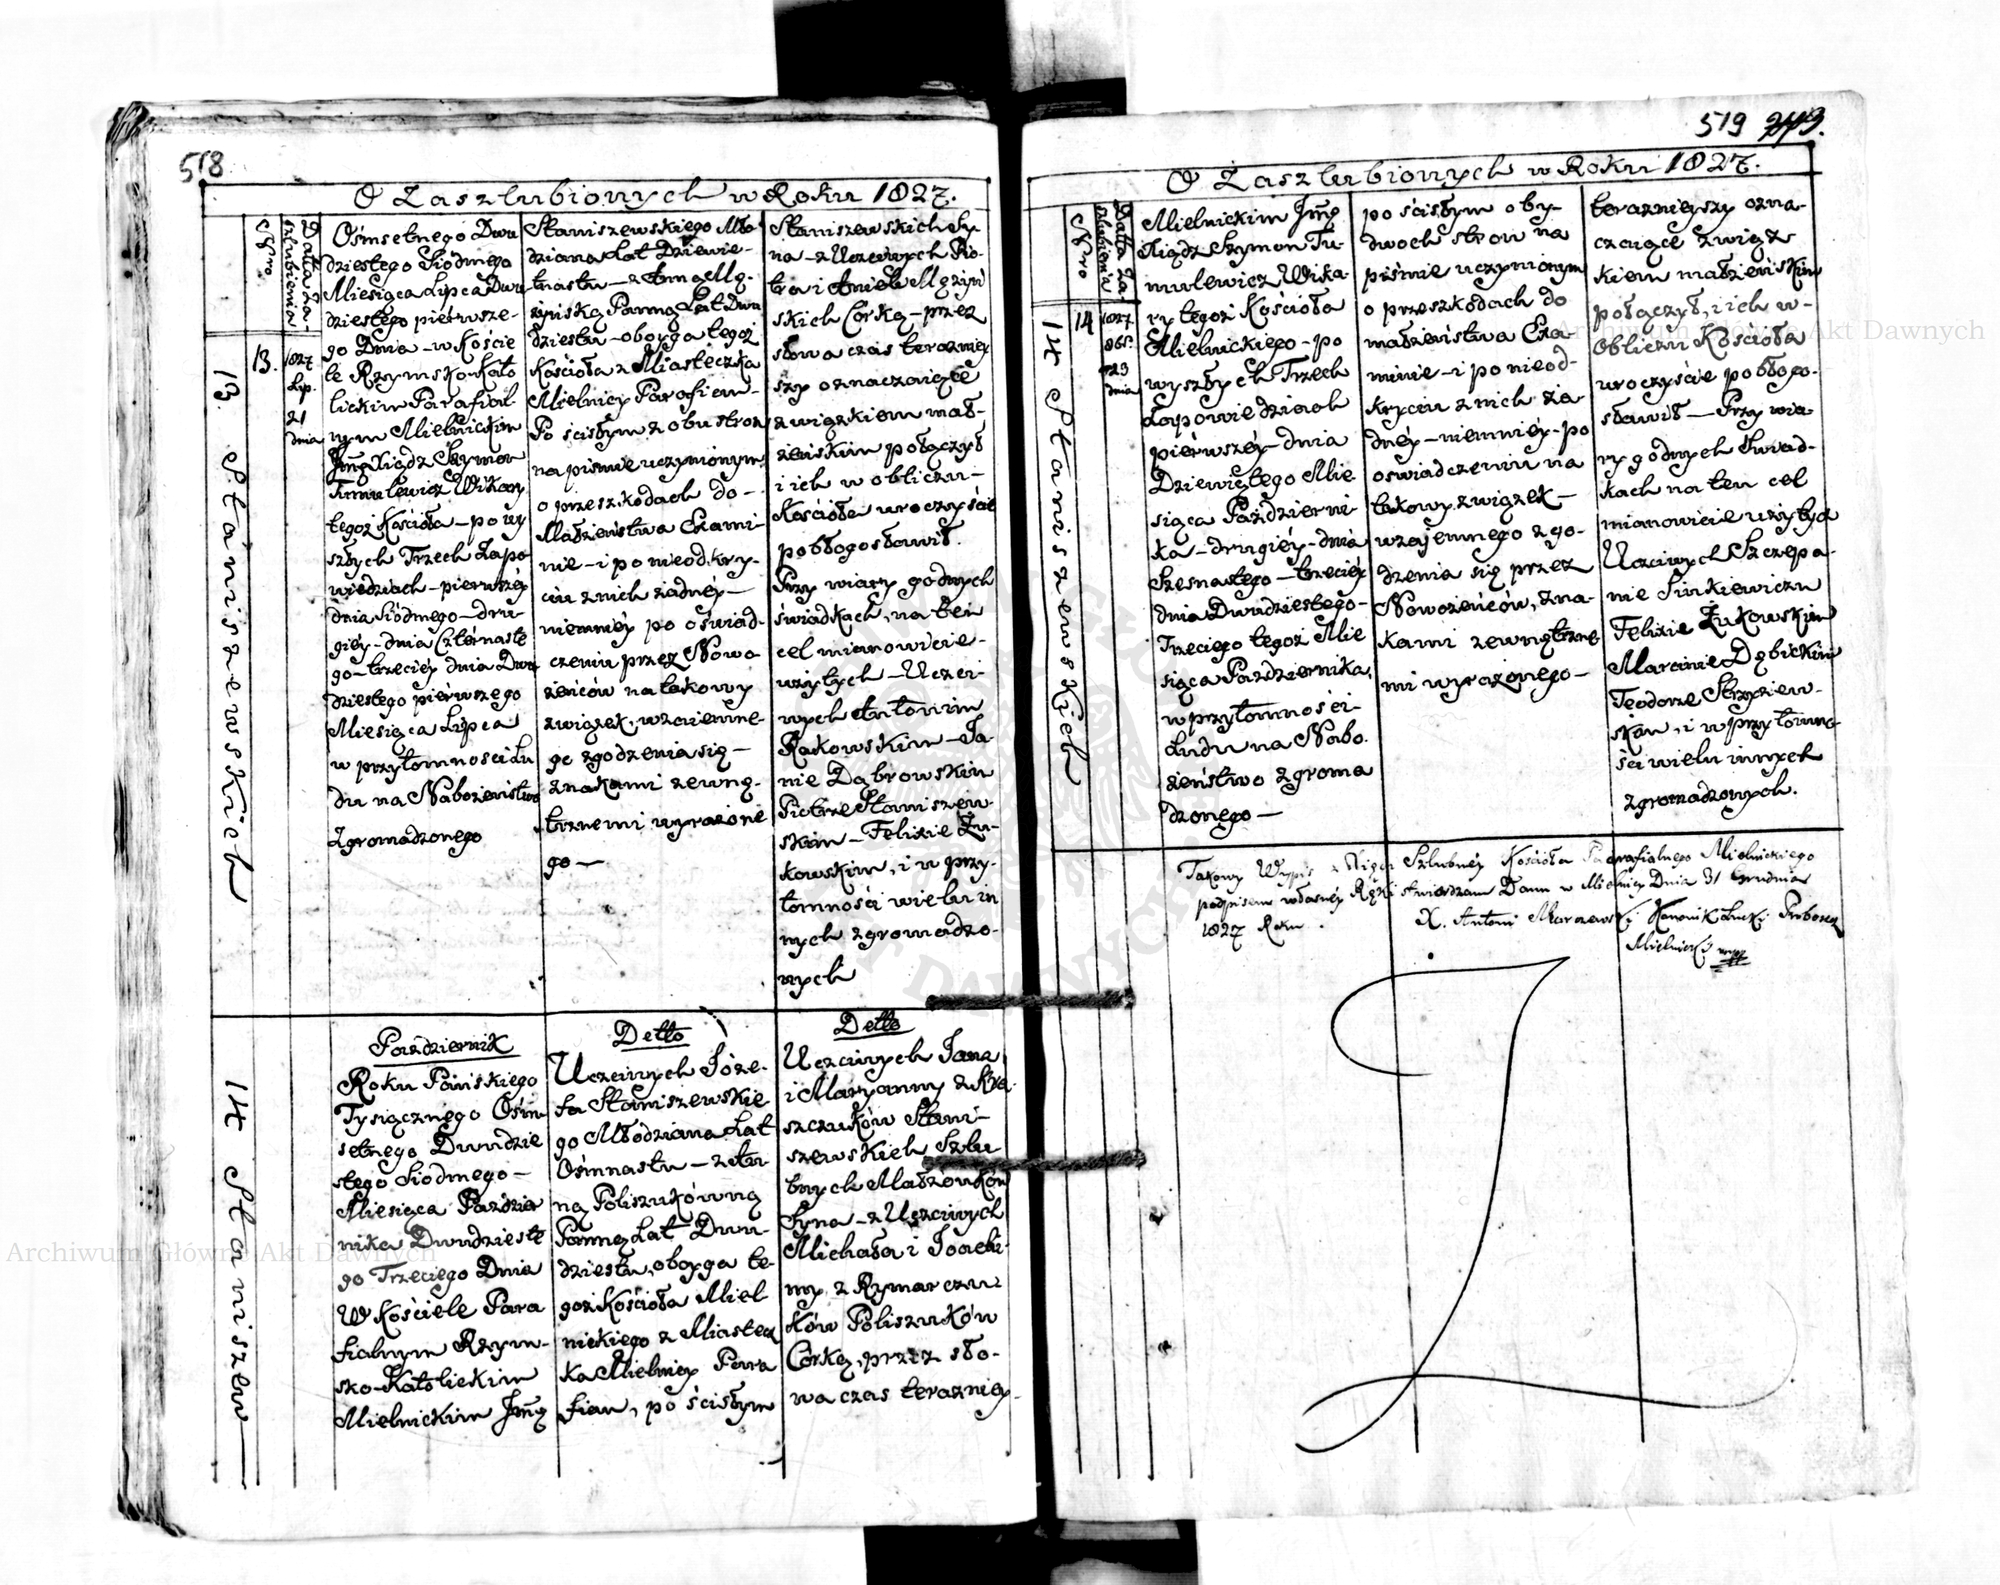 518
O Zaszlubionych w Roku 1827.
Nro
Datta Zaszlubienia
13.
1827
Lip.
21
dnia
13. Staniszewskich
Ośmsetnego Dwu
dziestego Siódmego
Miesiąca Lipca Dwu
dziestego pierwsze-
go Dnia - w Koście
le Rzymsko Kato
lickim Parafial-
nym Mielnickim
Jmć Xiądz Szymon
Tumulewicz Wikary
tegoż Kościoła - po wy
szłych Trzech Zapo
wiedziach - pierwszey
dnia Siódmego - dru-
giéy - dnia Czternaste
go - trzeciey dnia Dwu
dziestego pierwszego
Miesiąca Lipca
w przytomności Lu
du na Nabożeństwo
Zgromadzonego
Staniszewskiego Mło
dziana Lat Dziewie-
tnastu - z Anną Mę-
żyńską Panną Lat Dwu
dziestu - oboyga tegoż
Kościoła z Miasteczka
Mielnicy Parafian -
Po ścisłym z obu stron
na piśmie uczynionym
o przeszkodach do -
Małżeństwa Exami-
nie - i po nieodkry-
ciu z nich żadnéy -
niemniéy po oświad-
czeniu przez Nowo
żeńców na takowy
związek, wzaiemne-
go zgodzenia się -
znakami zewnę-
trznemi wyrażone
go -
Staniszewskich Sy
na - z Uczciwych Pio-
tra i Anieli Mężyń
skich Córką - przez
słowa czas teraźniey
szy oznaczaiące
związkiem mał-
żeńskim połączył
i ich w obliczu -
Kościoła uroczyście
pobłogosławił.
Przy wiary godnych
świadkach, na ten
cel mianowicie -
użytych - Uczci-
wych Antonim
Rakowskim - Ja-
nie Dąbrowskim
Piotrze Staniszew-
skim - Felixie Żu-
kowskim, i w przy-
tomności wielu in
nych zgromadzo-
nych
14 Staniszew
Październik
Roku Pańskiego
Tysiącznego Ośm
setnego Dwudzie
stego Siódmego -
Miesiąca Paździer
nika Dwudzieste
go Trzeciego Dnia
W Kościele Para
fialnym Rzym-
sko-Katolickim
Mielnickim Jmć
Detto
Uczciwych Józe-
fa Staniszewskie
go Młodziana Lat
Ośmnastu - z An
ną Poliszukówną
Panną Lat Dwu-
dziestu, oboyga te-
goż Kościoła Miel-
nickiego z Miastecz
ka Mielnicy Para
fian, po ścisłym
Detto
Uczciwych Jana
i Maryanny z Kra-
szczuków Stani-
szewskich Szlu
bnych Małżonków
Syna - z Uczciwych
Michała i Joachi-
my z Rymarczu-
ków Poliszuków
Córką, przez sło-
wa czas teraźniey-
519
O Zaszlubionych w Roku 1827.
Nro
Datta Zaszlubienia
14
1827
23
dnia
14 Staniszewskich
Mielnickim Jmć
Xiądz Szymon Tu-
mulewicz Wika-
ry tegoż Kościoła
Mielnickiego - po
wyszłych Trzech
Zapowiedziach
pierwszéy - dnia
Dziewiątego Mie
siąca Październi
ka - drugiéy - dnia
Szesnastego - trzeciéy
dnia Dwudziestego -
Trzeciego tegoż Mie
siąca Października,
w przytomności -
Ludu na Nabo-
żeństwo zgroma
dzonego -
po ścisłym oby-
dwoch stron na
piśmie uczynionym
o przeszkodach do
małżeństwa Exa
minie - i po nieod-
kryciu z nich ża
dnéy - niemniéy - po
oświadczeniu na
takowy związek -
wzajemnego zgo-
dzenia się przez
Nowożeńców, zna-
kami zewnętrzne
mi wyrażonego -
teraznieyszy ozna-
czaiące związ
kiem małżeńskim
połączył, i ich w -
Obliczu Kościoła
uroczyście pobłogo-
sławił - Przy wia-
ry godnych Świad-
kach na ten cel
mianowicie użytych
Uczciwych Szczepa-
nie Sinkiewiczu
Felixie Żukowskim
Marcinie Dąbickim
Teodorze Skrzyniew-
skim, i w przytomno-
ści wielu innych
zgromadzonych.
Takowy Wypis z Xięgi Szlubnéy Kościoła Parafialnego Mielnickiego
podpisem własnéy Ręki stwierdzam Dann w Mielnicy Dnia 31 Grudnia
1827 Roku.
X. Antoni Kanonik Proboszcz
Mielnicki mpp
Archiwum Główne Akt Dawnych
Archiwum Główne Akt Dawnych